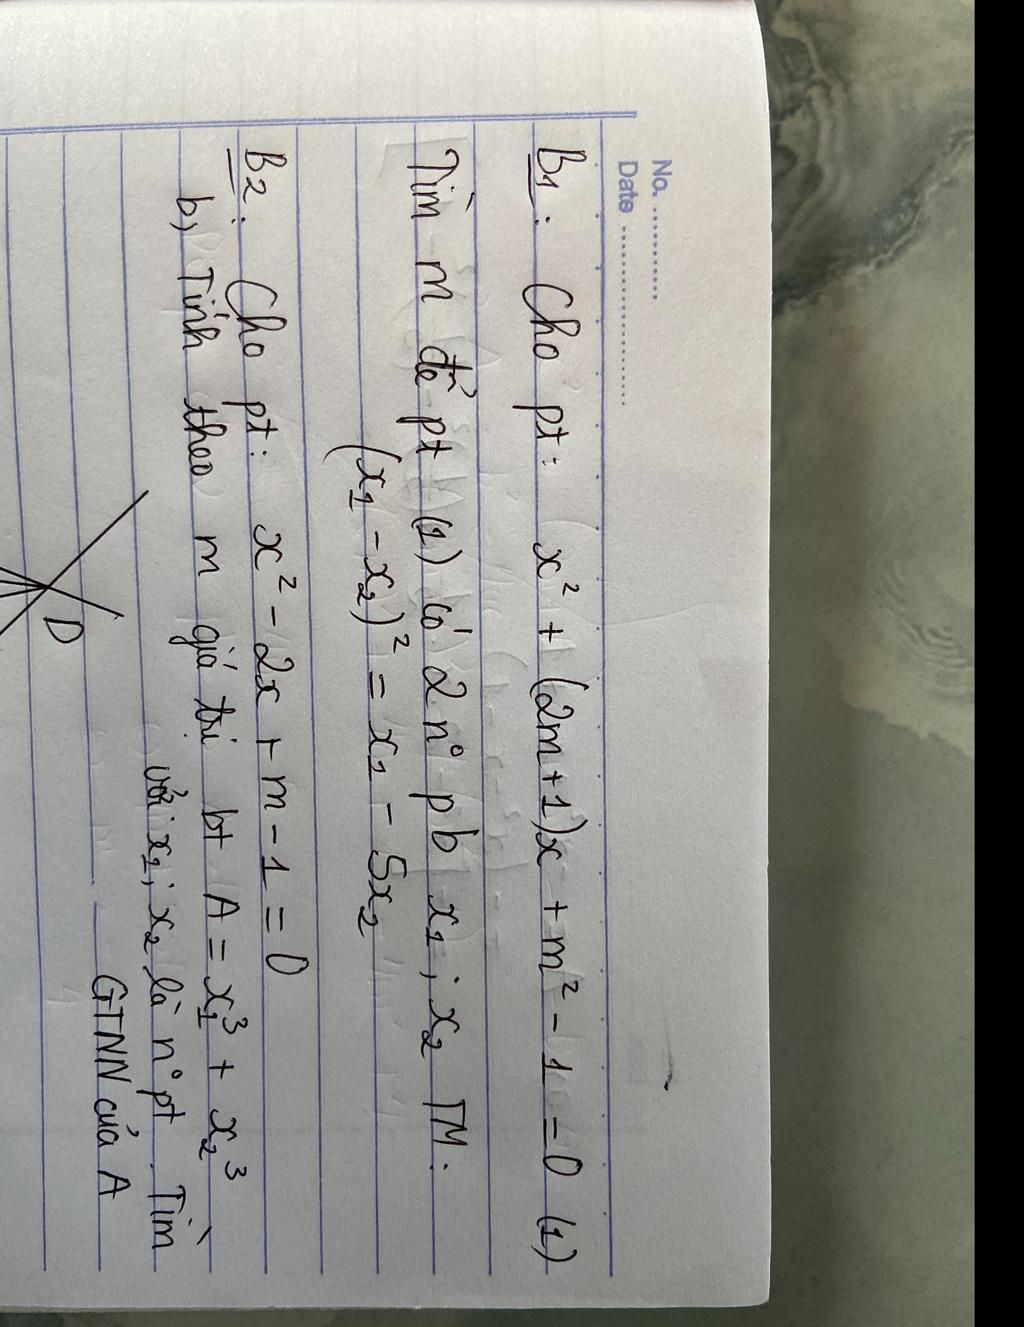 No. ............
Date ........................
B1: Cho pt: x² + (2m+1)x + m² - 1 = 0 (1)
Tìm m để pt (1) có 2 n° pb x₁; x₂ TM.
(x₁ - x₂)² = x₁ - 5x₂
B2: Cho pt: x² - 2x + m - 1 = 0
b, Tính theo m giá trị bt A = x₁³ + x₂³
với x₁; x₂ là n° pt. Tìm
GTNN của A
D